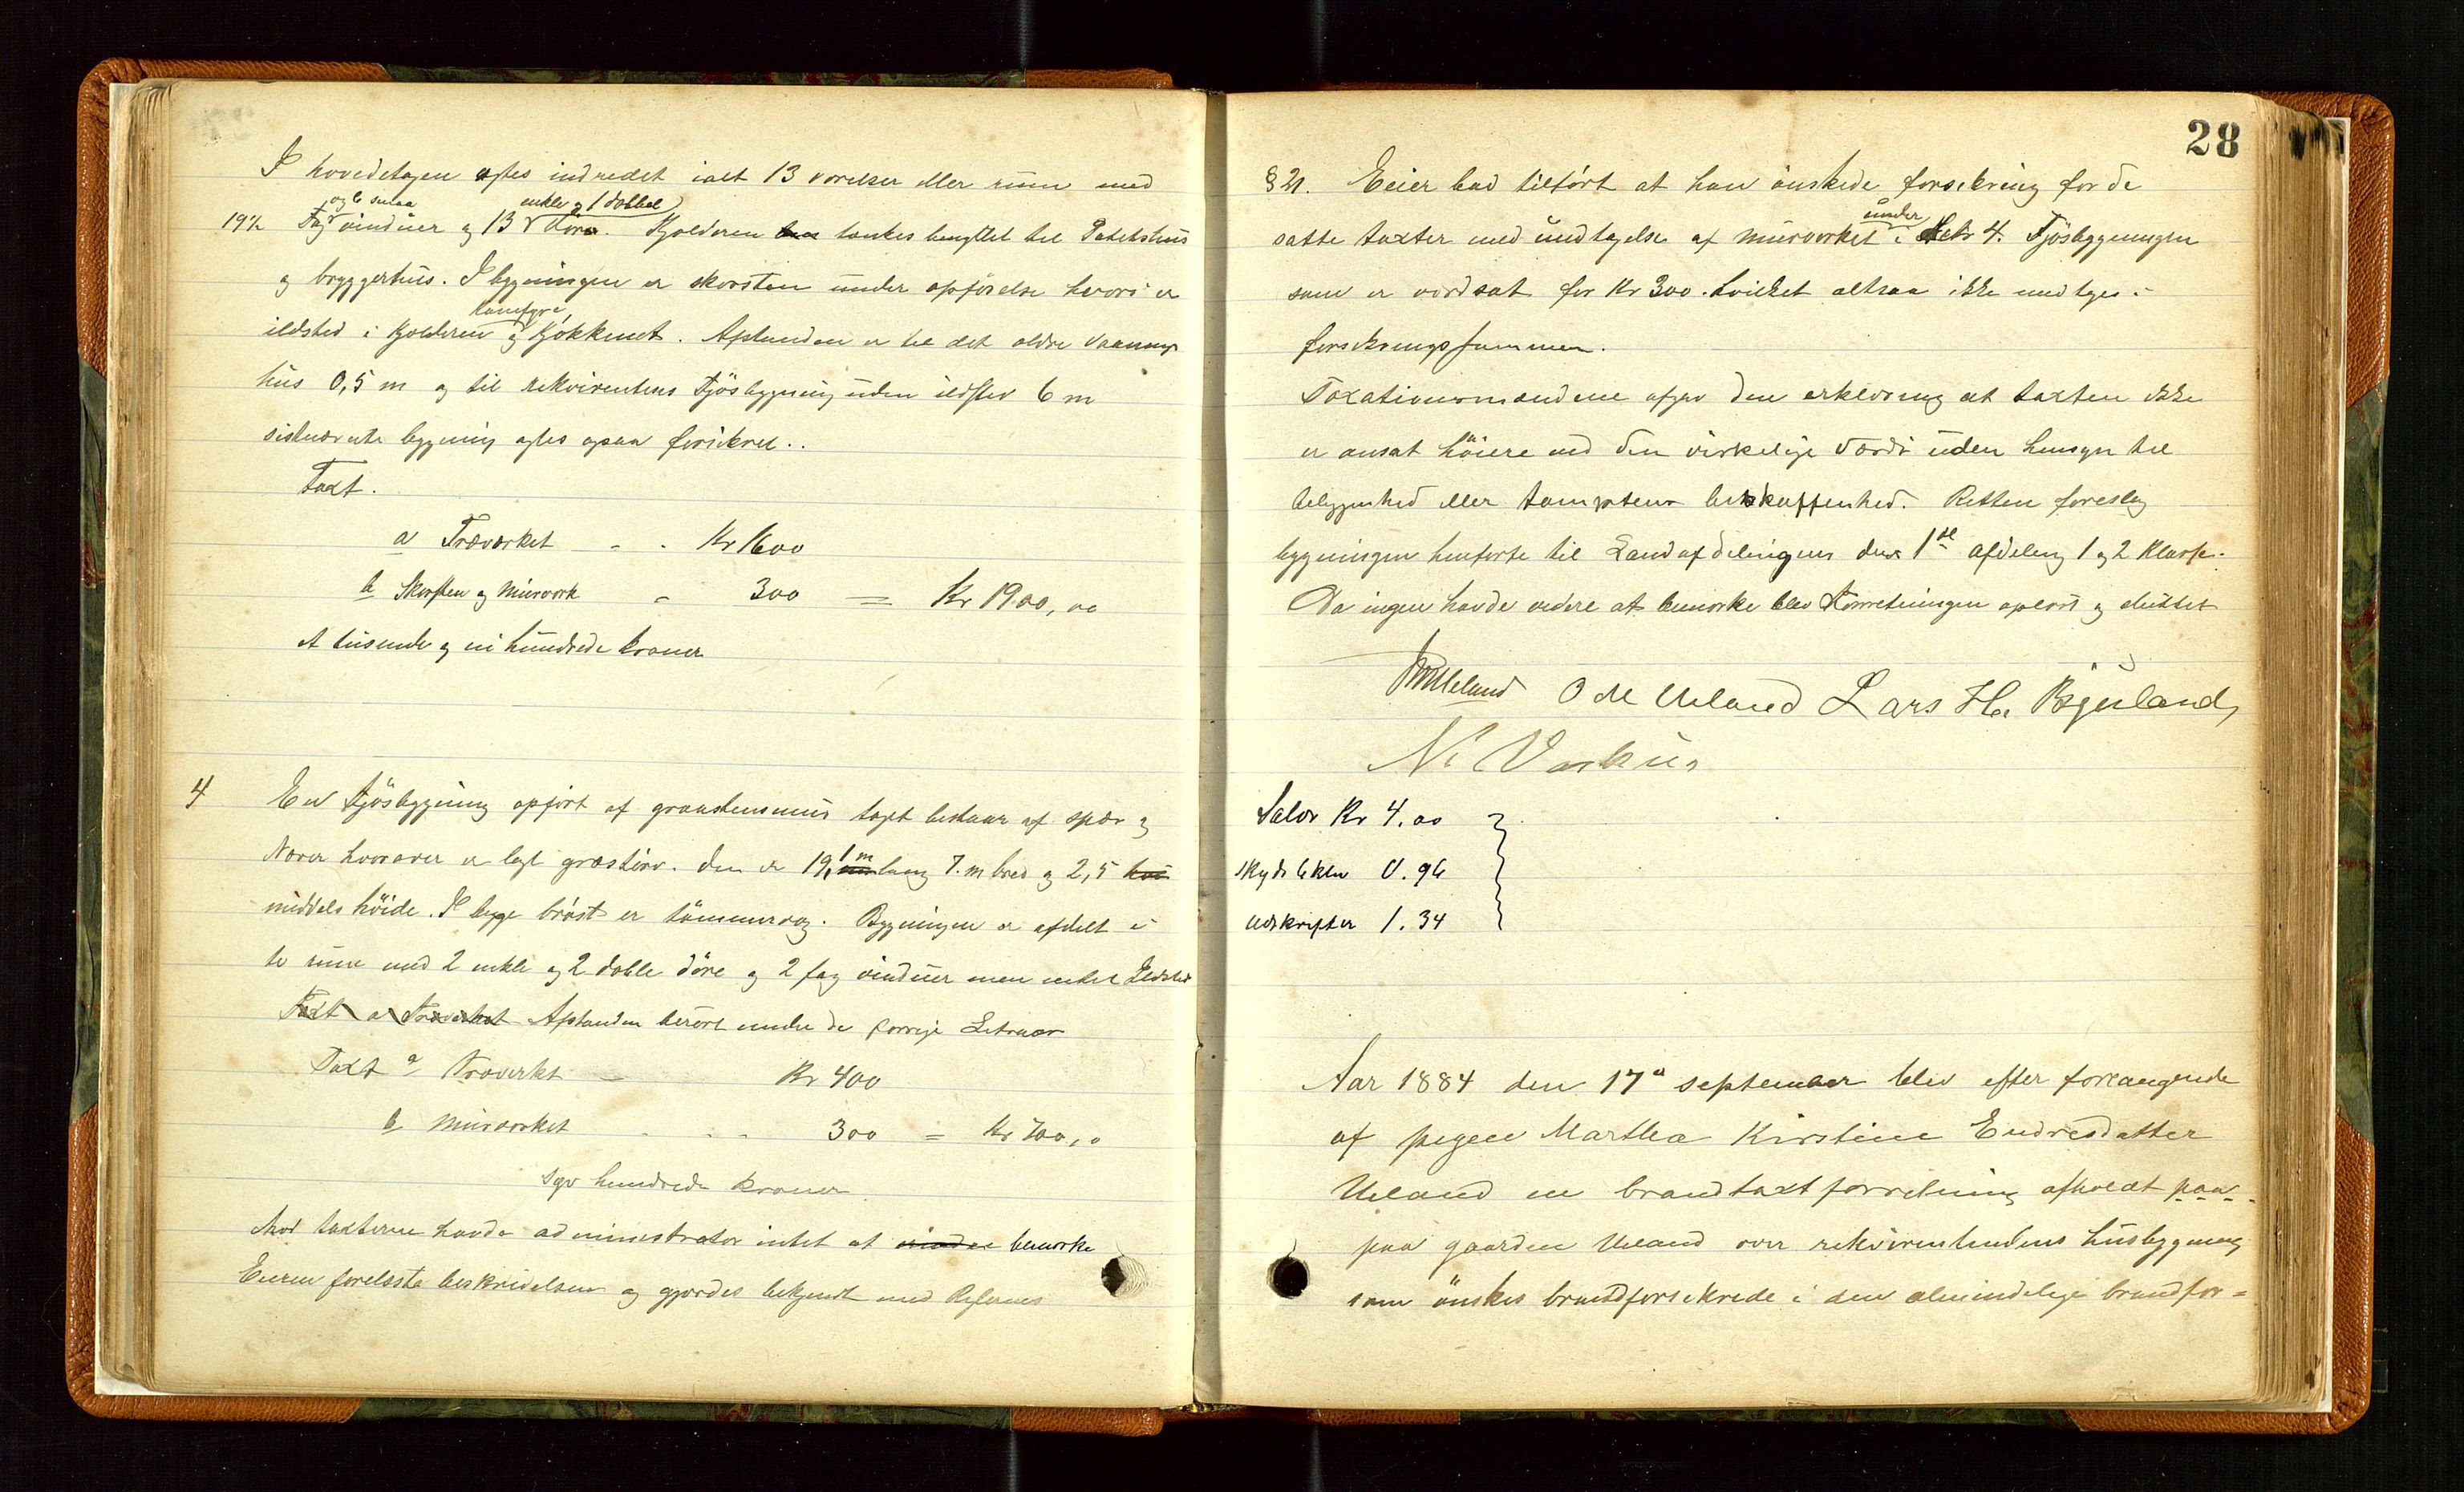 I hovedetagen agtes indredet ialt 13 vœrelser eller rum med
og 6 smaa enkle og 1 dobbel
19½ Fag vinduer og 13 Döre. Kjelderen tœnkes benyttet til
og bryggerhus. I bygningen er skorsten under opförelse hvori er
Komfyre
ildsted i Kjelderen og Kjökkenet. Afstanden er til det œldre Vaanings
hus 0,5 m og til rekvirentens Fjösbygning uden ildsted 6 m
sistnœvnte bygning agtes ogsaa forsikret.
Taxt.
a Trœvœrket - - Kr 1600
b Skorsten og Murvœrk - 300 = Kr 1900,00
et tusende og ni hundrede kroner
4 En Fjösbygning opfört af graastensmur taget bestaar af spœr og
Nœver hvorover er lagt grœstörv. Den er 19,1 m lang 7. m bred og 2,5 höi
middels höide. I begge bröst er tömmervœg. Bygningen er afdelt i
to rum med 2 enkle og 2 doble döre og 2 fag vinduer men intet Ildsted
Taxt a Trœverket Afstanden berört under de forrige Litraer
Taxt a Trœverket - Kr 400
b Murvœrket - - - 300 = Kr 700,0
syv hundrede kroner
Mod taxterne havde administrator intet at bemœrke
Eieren forelœste beskrivelsen og gjordes bekjendt med
28
§ 21. Eier bad tilfört at han önskede forsikring for de
under
satte taxter med undtagelse af murvœrket i Litr 4. Fjösbygningen
som er vœrdsat for Kr 300. hvilket altsaa ikke medtages i
forsikringssummen.
Taxationsmœndene afgav den erklœring at taxten ikke
er ansat höiere end den virkelige Vœrdi uden hensyn til
beliggenhed eller tomptens beskaffenhed. Retten foreslog
bygningen henförte til Landafdelingens 1ste afdeling 1 og 2 Klasse.
Da ingen havde videre at bemœrke blev Forretningen oplœst og sluttet
Ueland O M Ueland Lars H. Bjuland,
Salœr Kr 4.00
Skyds 6 klm 0.96
Udskrifter 1.34
Aar 1884 den 17de september blev efter forlangende
af pigen Martha Kirstine Endresdatter
Ueland en brandtaxtforretning afholdt paa
paa gaarden Ueland over rekvirentindens husbygning
som önskes brandforsikrede i den almindelige brandfor=